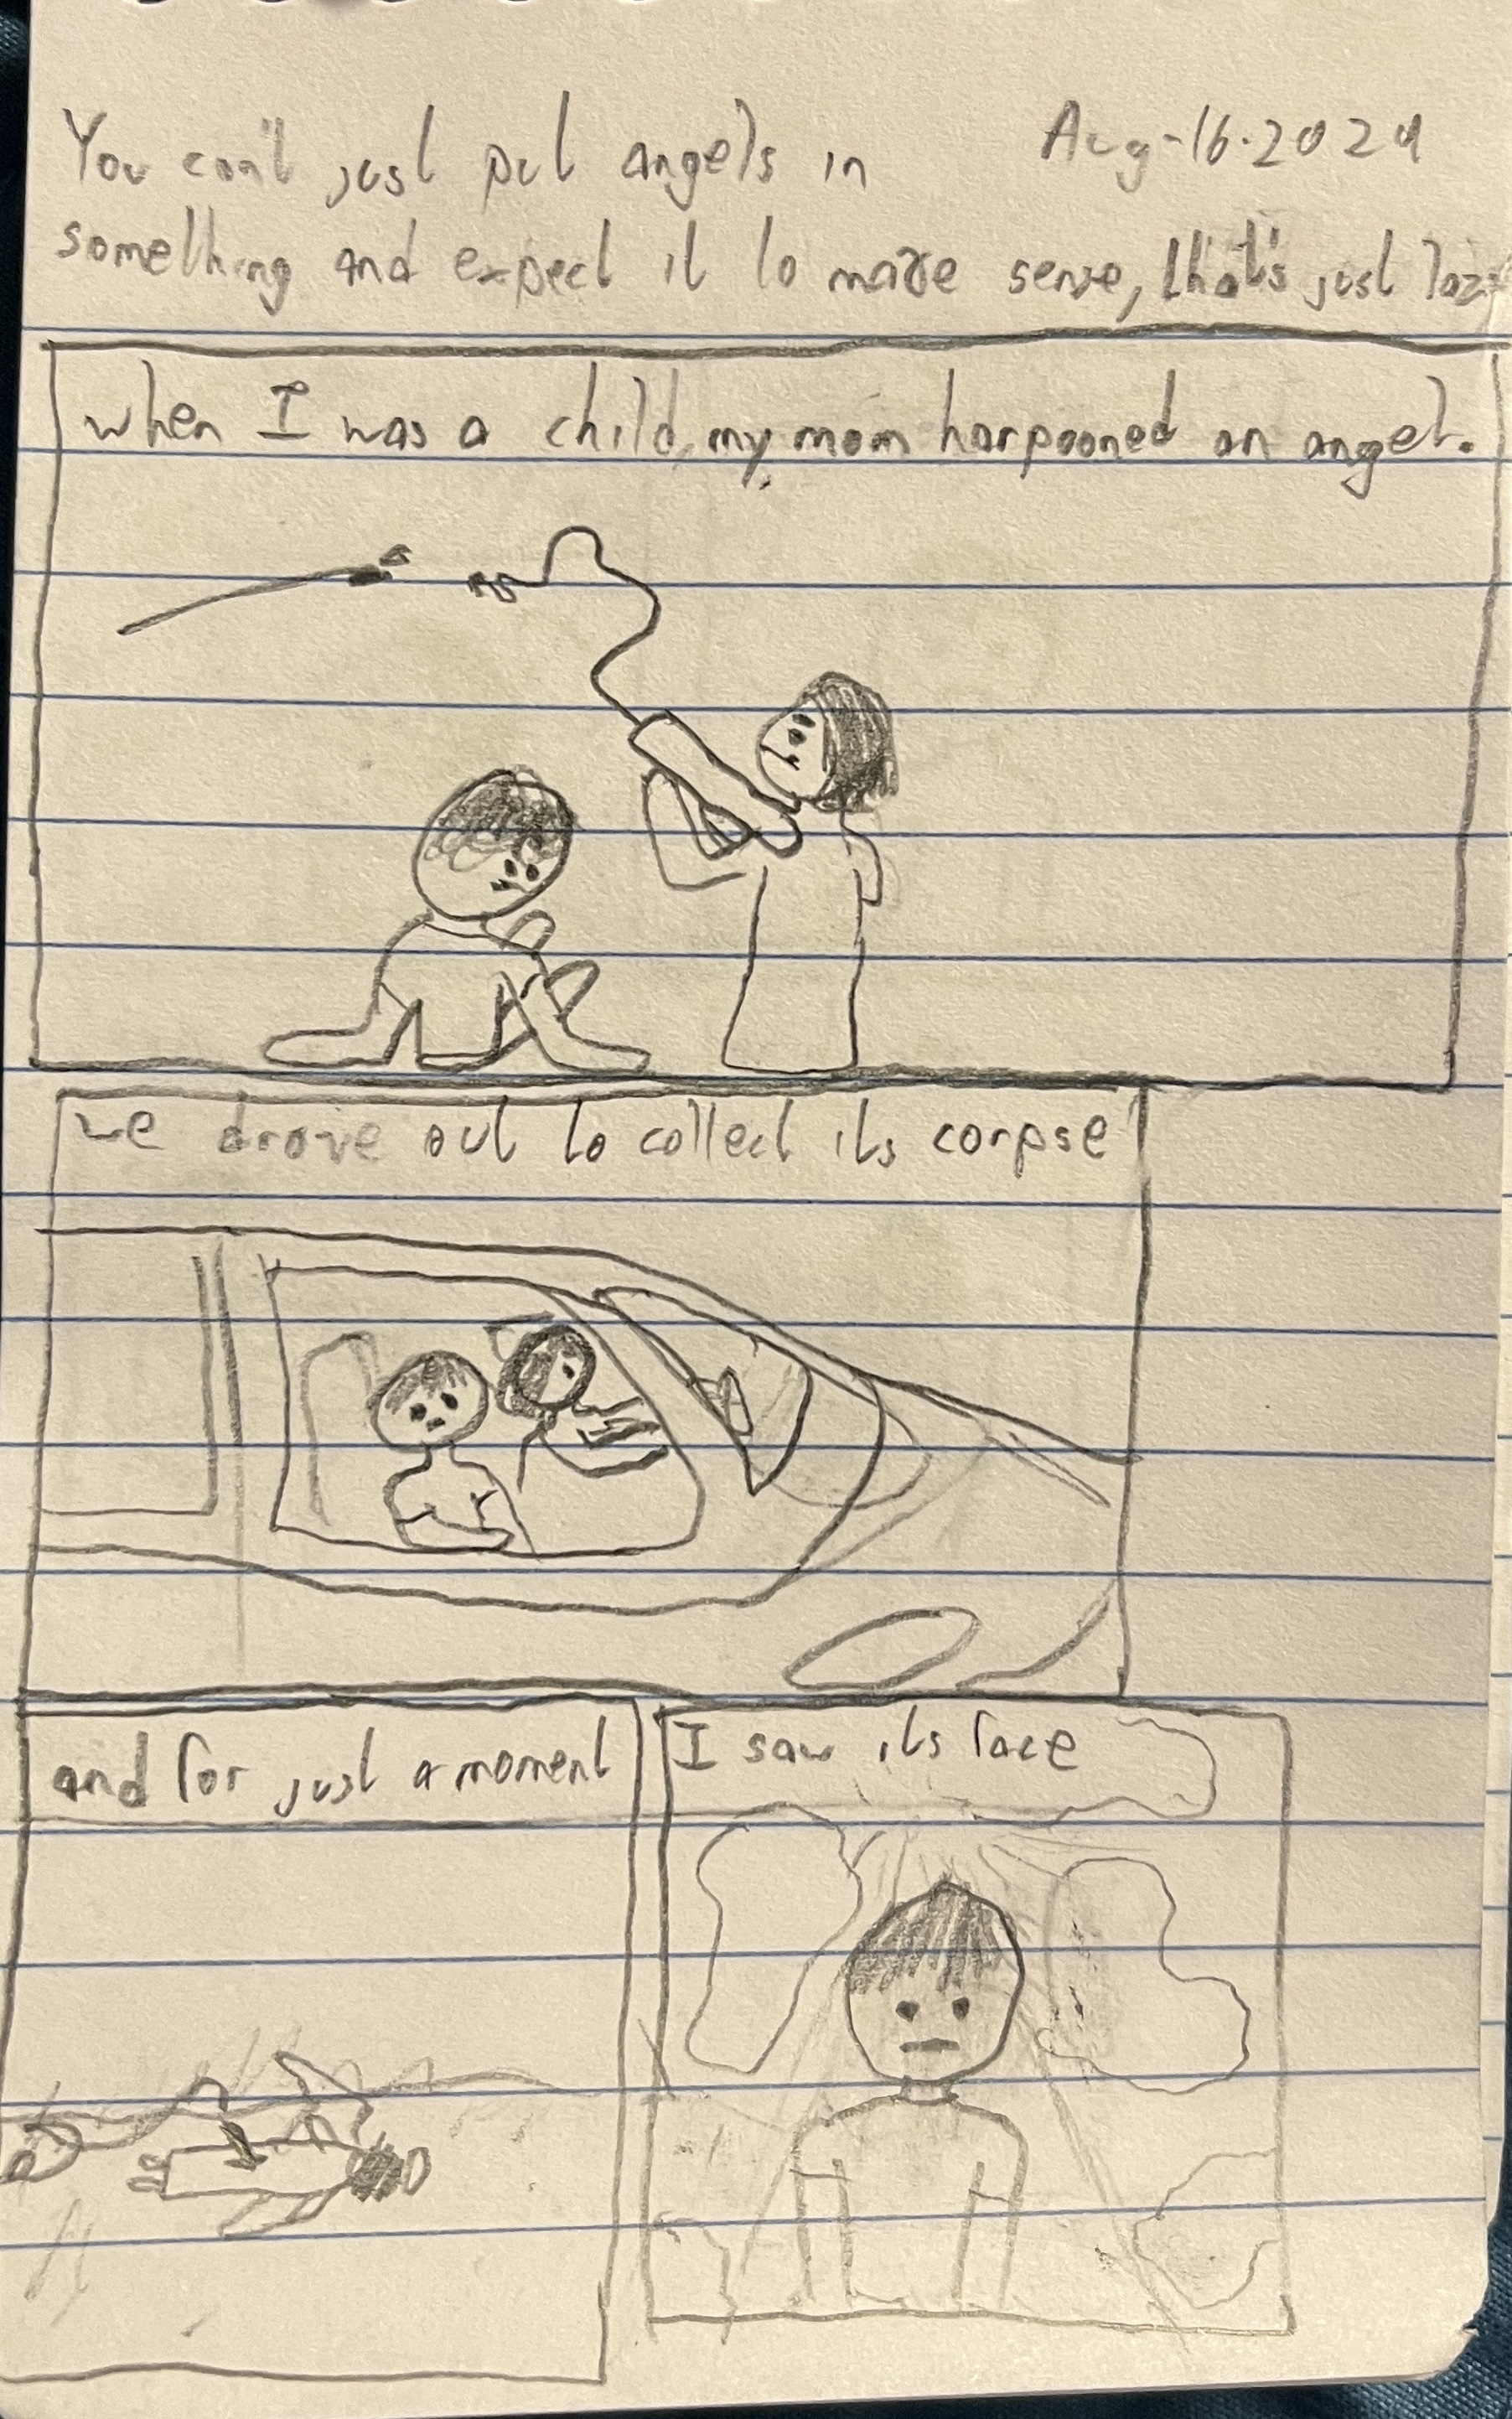 You can't just put angels in
Aug-16-2024
something and expect it to make sense, that's just lazy
when I was a child, my mom harpooned an angel.
we drove out to collect its corpse
and for just a moment
I saw its face